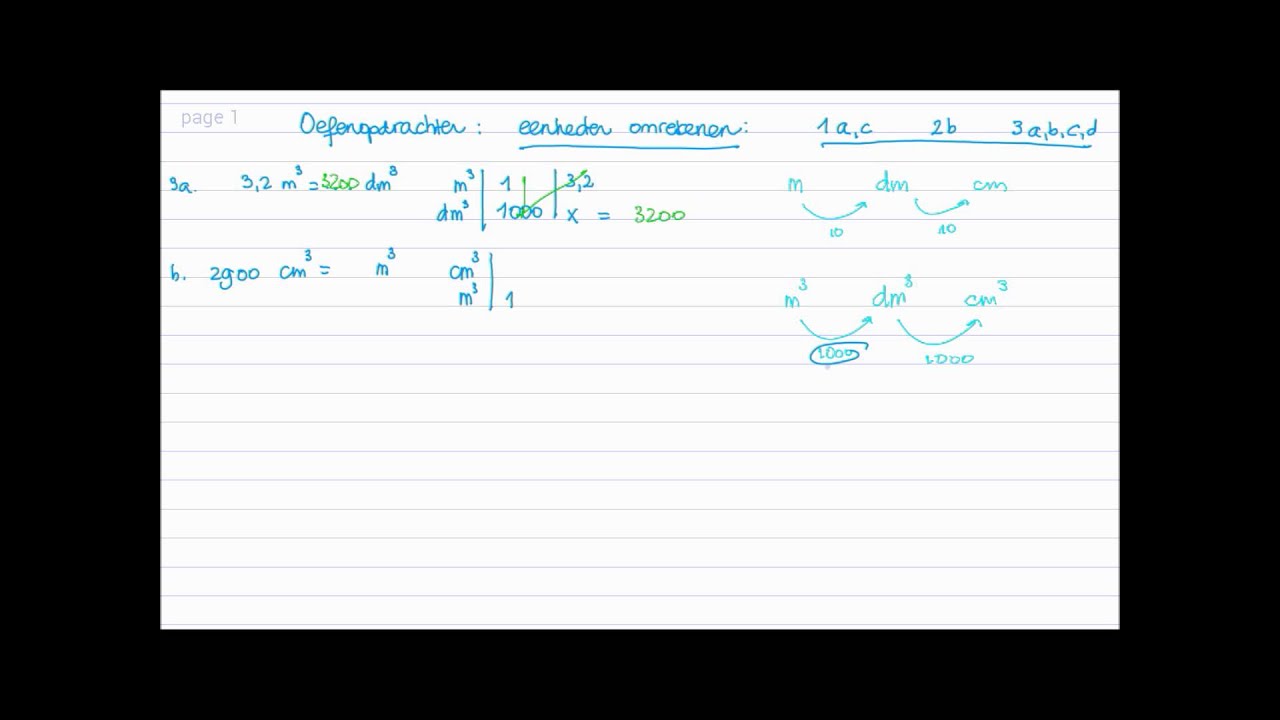 page 1
Oefenopdrachten: eenheden omrekenen: 1a,c 2b 3a,b,c,d
3a. 3,2 m³ = 3200 dm³ m³ | 1 | 3,2
dm³ | 1000 | x = 3200
m dm cm
10 10
b. 2900 cm³ = m³ cm³ |
m³ | 1
m³ dm³ cm³
1000 1000